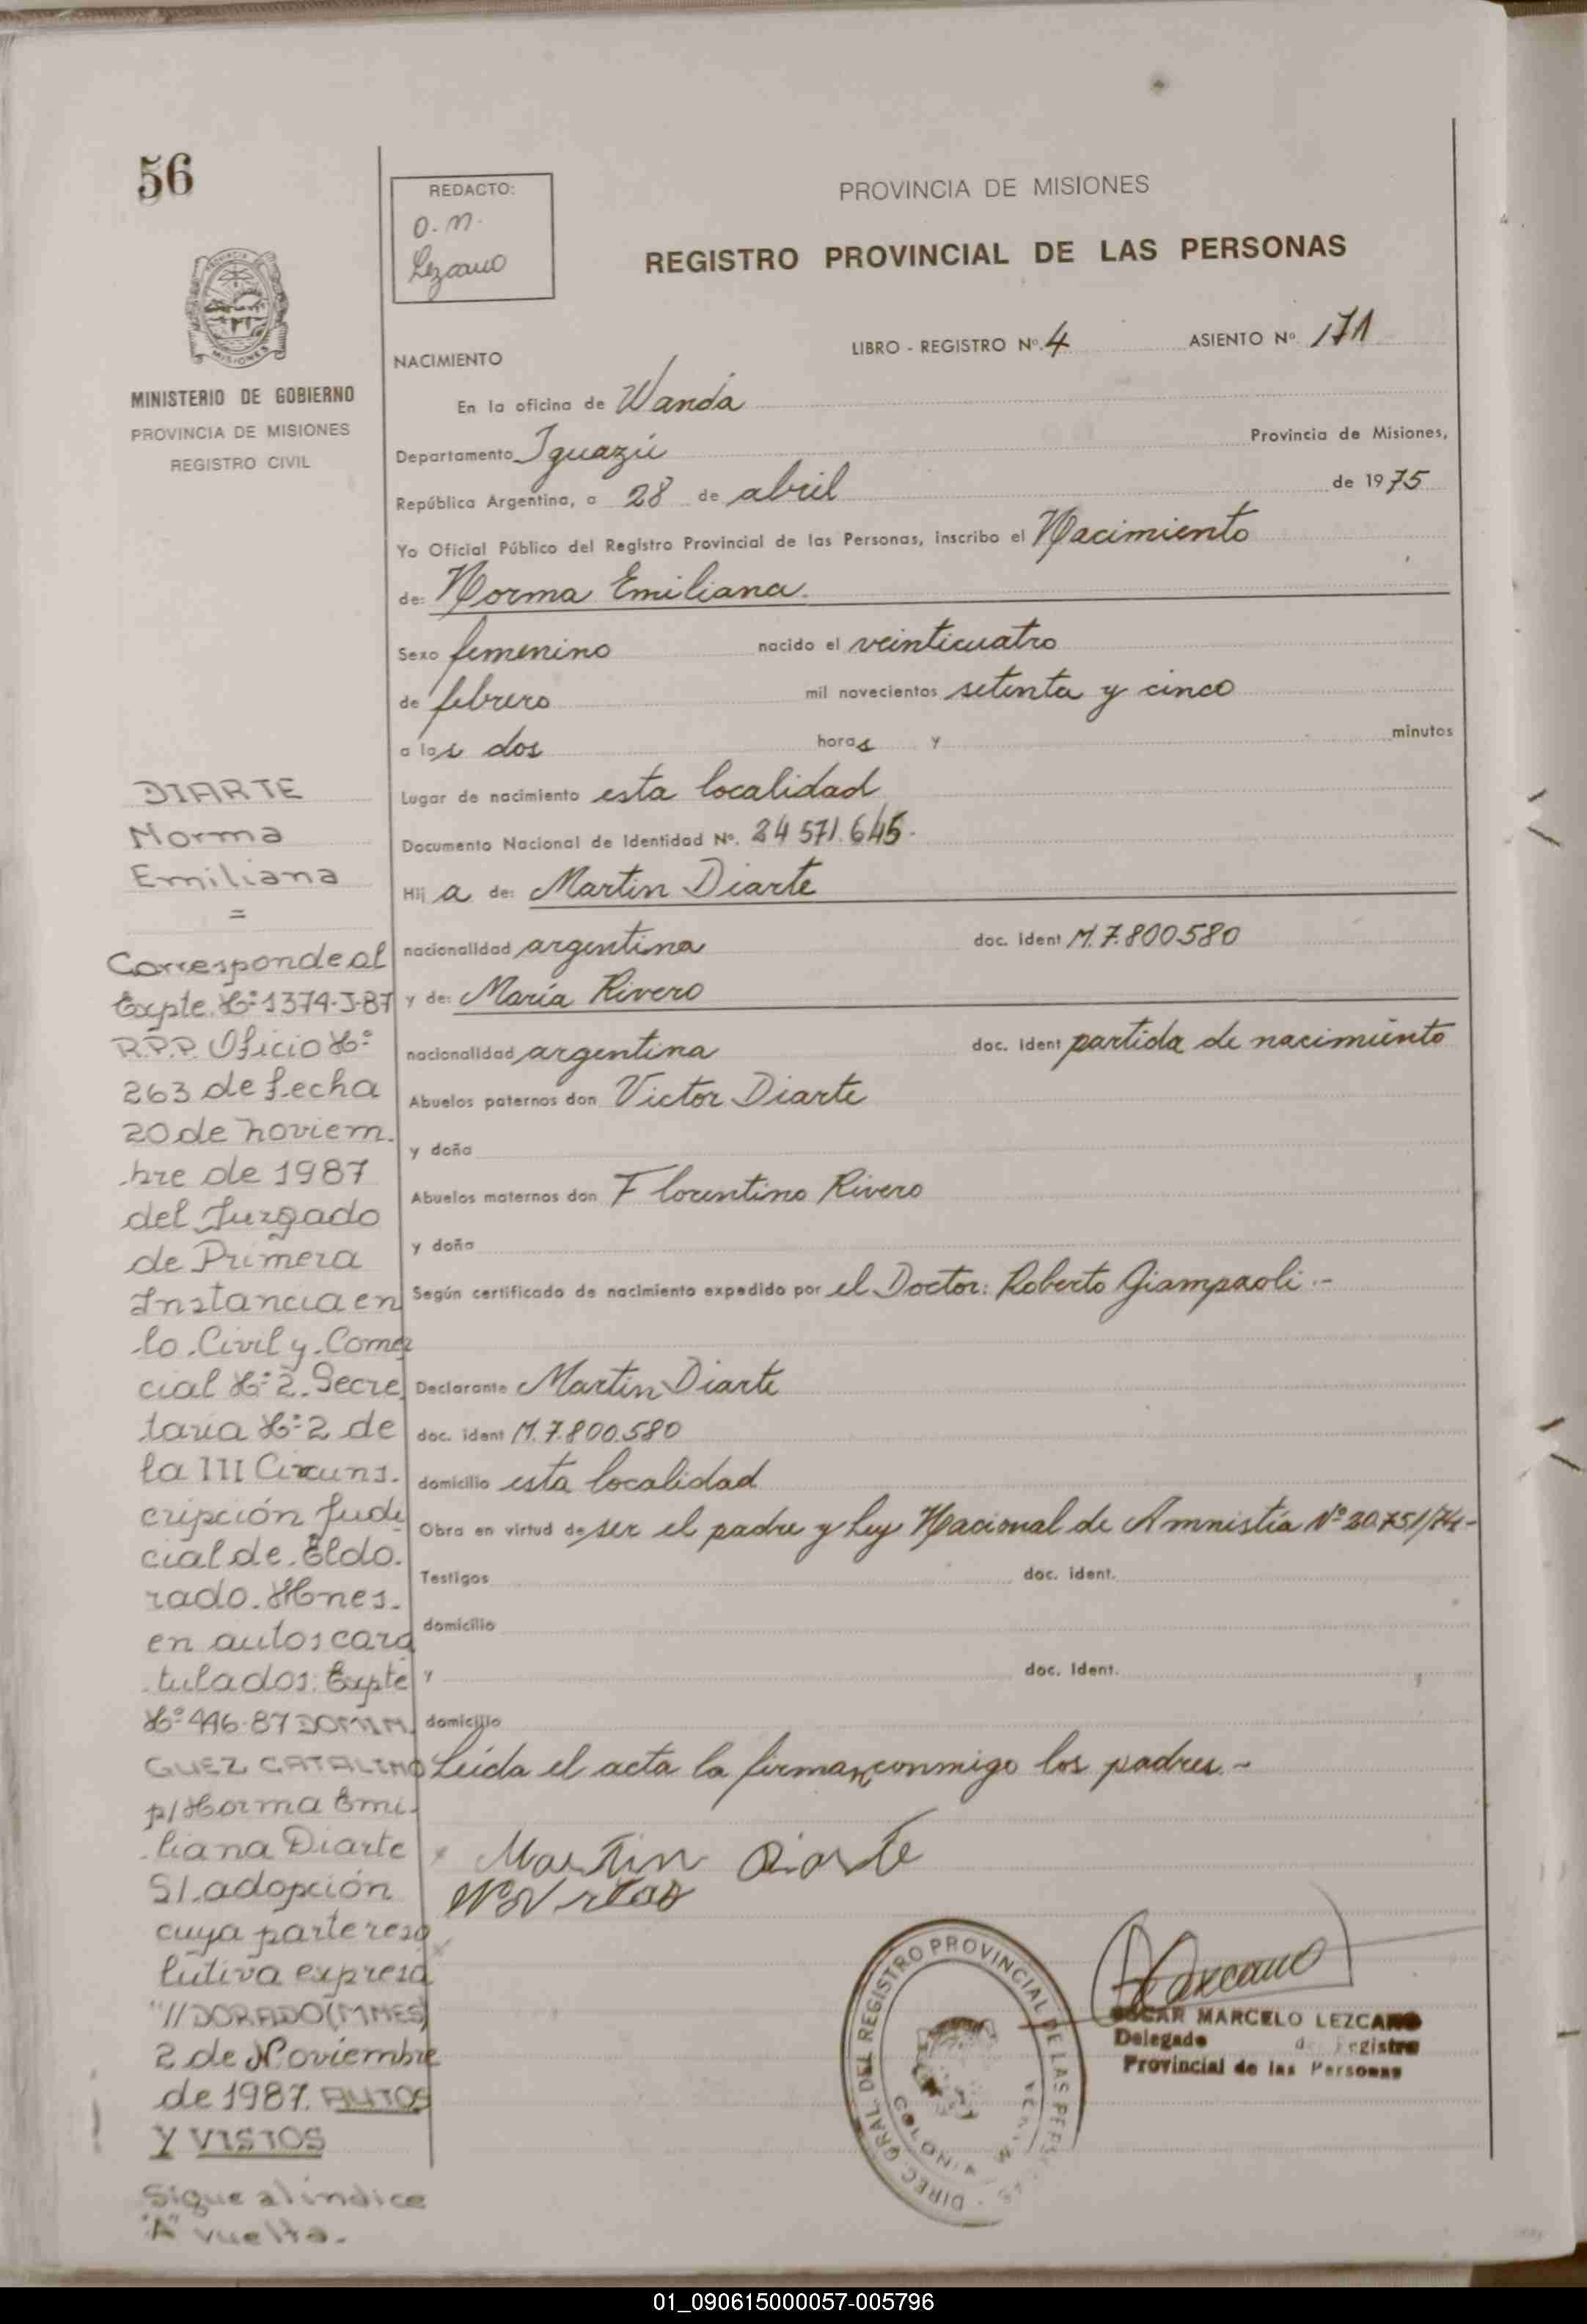 56
REDACTO:
O. M.
Lezcano
PROVINCIA DE MISIONES
REGISTRO PROVINCIAL DE LAS PERSONAS
MISIONES
MINISTERIO DE GOBIERNO
PROVINCIA DE MISIONES
REGISTRO CIVIL
LIBRO - REGISTRO Nº. 4 ASIENTO Nº 171
NACIMIENTO
En la oficina de Wanda
Departamento Iguazú Provincia de Misiones,
República Argentina, a 28 de abril de 1975
Yo Oficial Público del Registro Provincial de las Personas, inscribo el Nacimiento
de: Norma Emiliana
Sexo femenino nacido el veinticuatro
de febrero mil novecientos setenta y cinco
a las dos horas y minutos
Lugar de nacimiento esta localidad
Documento Nacional de Identidad Nº. 24 571.645.
Hij a de: Martin Diarte
nacionalidad argentina doc. ident M. 7.800.580
y de: María Rivero
nacionalidad argentina doc. ident partida de nacimiento
Abuelos paternos don Victor Diarte
y doña
Abuelos maternos don Florentino Rivero
y doña
Según certificado de nacimiento expedido por el Doctor: Roberto Giampaoli.-
Declarante Martin Diarte
doc. ident M. 7.800.580
domicilio esta localidad
Obra en virtud de ser el padre y Ley Nacional de Amnistía Nº 20.751/74-
Testigos doc. ident.
domicilio
y doc. ident.
domicilio
Leída el acta la firman conmigo los padres.-
Martin Diarte
DIARTE
Norma
Emiliana
=
Corresponde al
Expte. Nº 1374-J-87
R.P.P. Oficio Nº
263 de fecha
20 de noviem.
bre de 1987
del Juzgado
de Primera
Instancia en
lo Civil y Comer
cial Nº 2. Secre
taria Nº 2 de
la III Circuns.
cripción Judi
cial de Eldo.
rado. Mnes.
en autos cara
tulados: Expte
Nº 446-87 DOMIN
GUEZ CATALINO
p/ Norma Emi.
liana Diarte
S/. adopción
cuya parte reso
lutiva expresa
"//DORADO (MNES)
2 de Noviembre
de 1987. AUTOS
Y VISTOS
Sigue al indice
"A" vuelta.
Lezcano
OSCAR MARCELO LEZCANO
Delegado de Registro
Provincial de las Personas
DIREC. GRAL. DEL REGISTRO PROVINCIAL DE LAS PERS
01_090615000057-005796